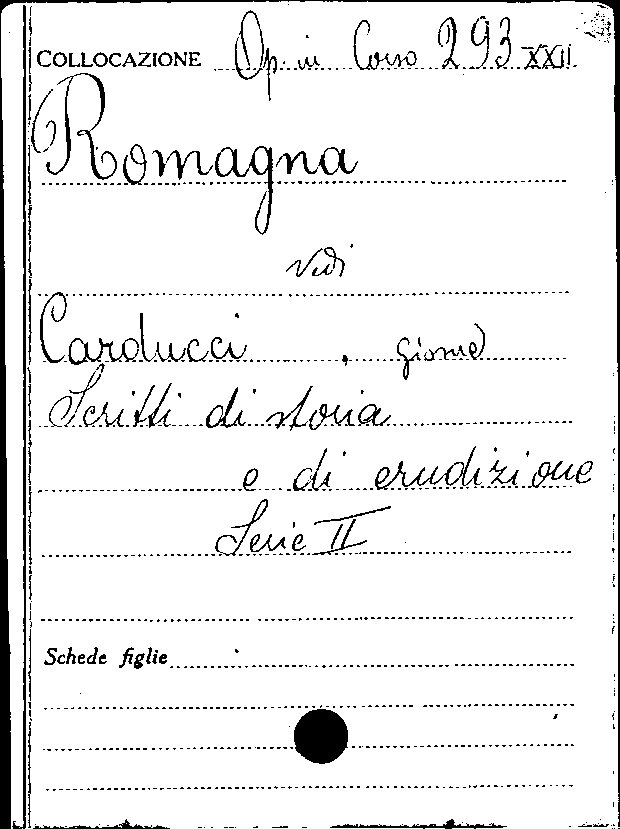 COLLOCAZIONE Op. in Corso 293 XXII
Romagna
Vedi
Carducci, Giosuè
Scritti di storia
e di erudizione
Serie II
Schede figlie